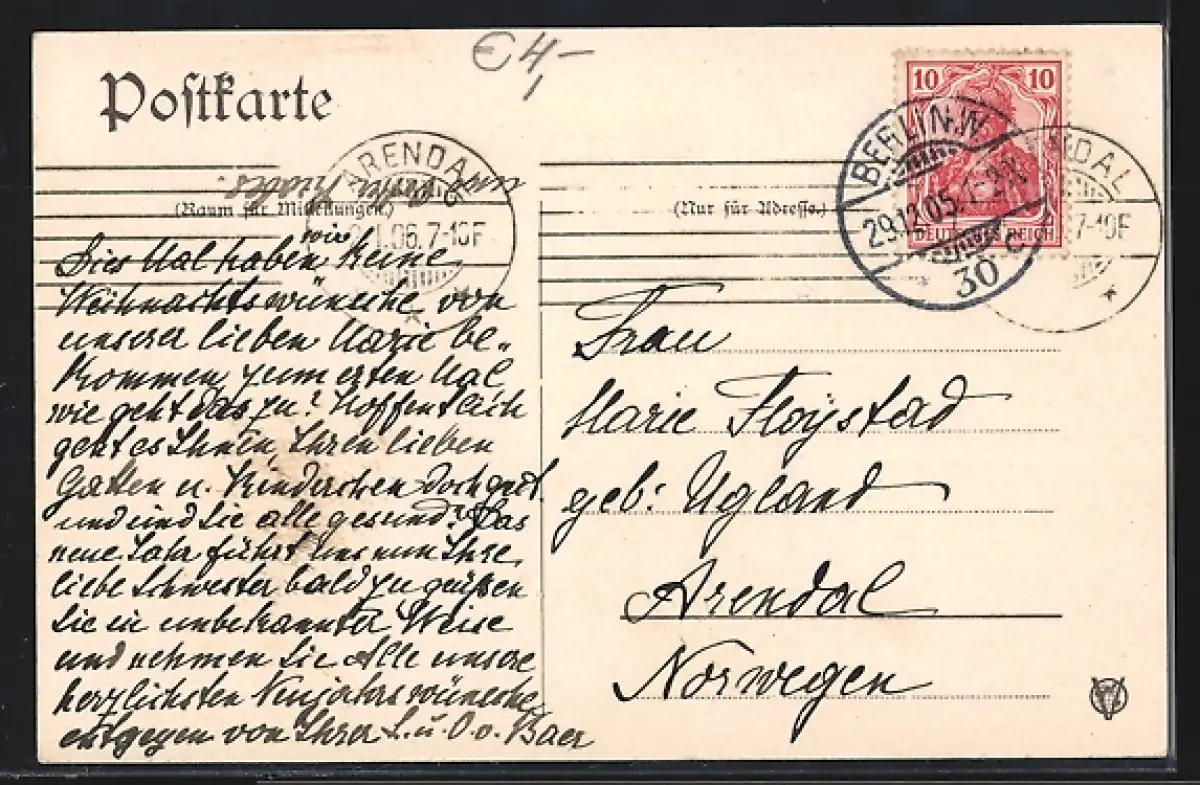 € 4,-
Postkarte
10 10
DEUTSCHES REICH
BERLIN.W
29.12.05.
30 c
ARENDAL
1.06.7-10F
NDAL
7-10F
(Raum für Mitteilungen.)
(Nur für Adresse.)
wir
Dies Mal haben keine
Weihnachtswünsche von
unserer lieben Marie be-
kommen, zum ersten Mal
wie geht das zu? Hoffentlich
geht es Ihnen, Ihren lieben
Gatten u. Kinderchen doch gut
und sind Sie alle gesund? Das
neue Jahr führt uns nun Ihre
liebe Schwester bald zu grüßen
Sie in unbekannter Weise
und nehmen Sie Alle unsere
herzlichsten Neujahrswünsche
entgegen von Ihrer L. u. O. v. Baer
Frau
Marie Floÿstad
geb: Ugland
Arendal
Norwegen